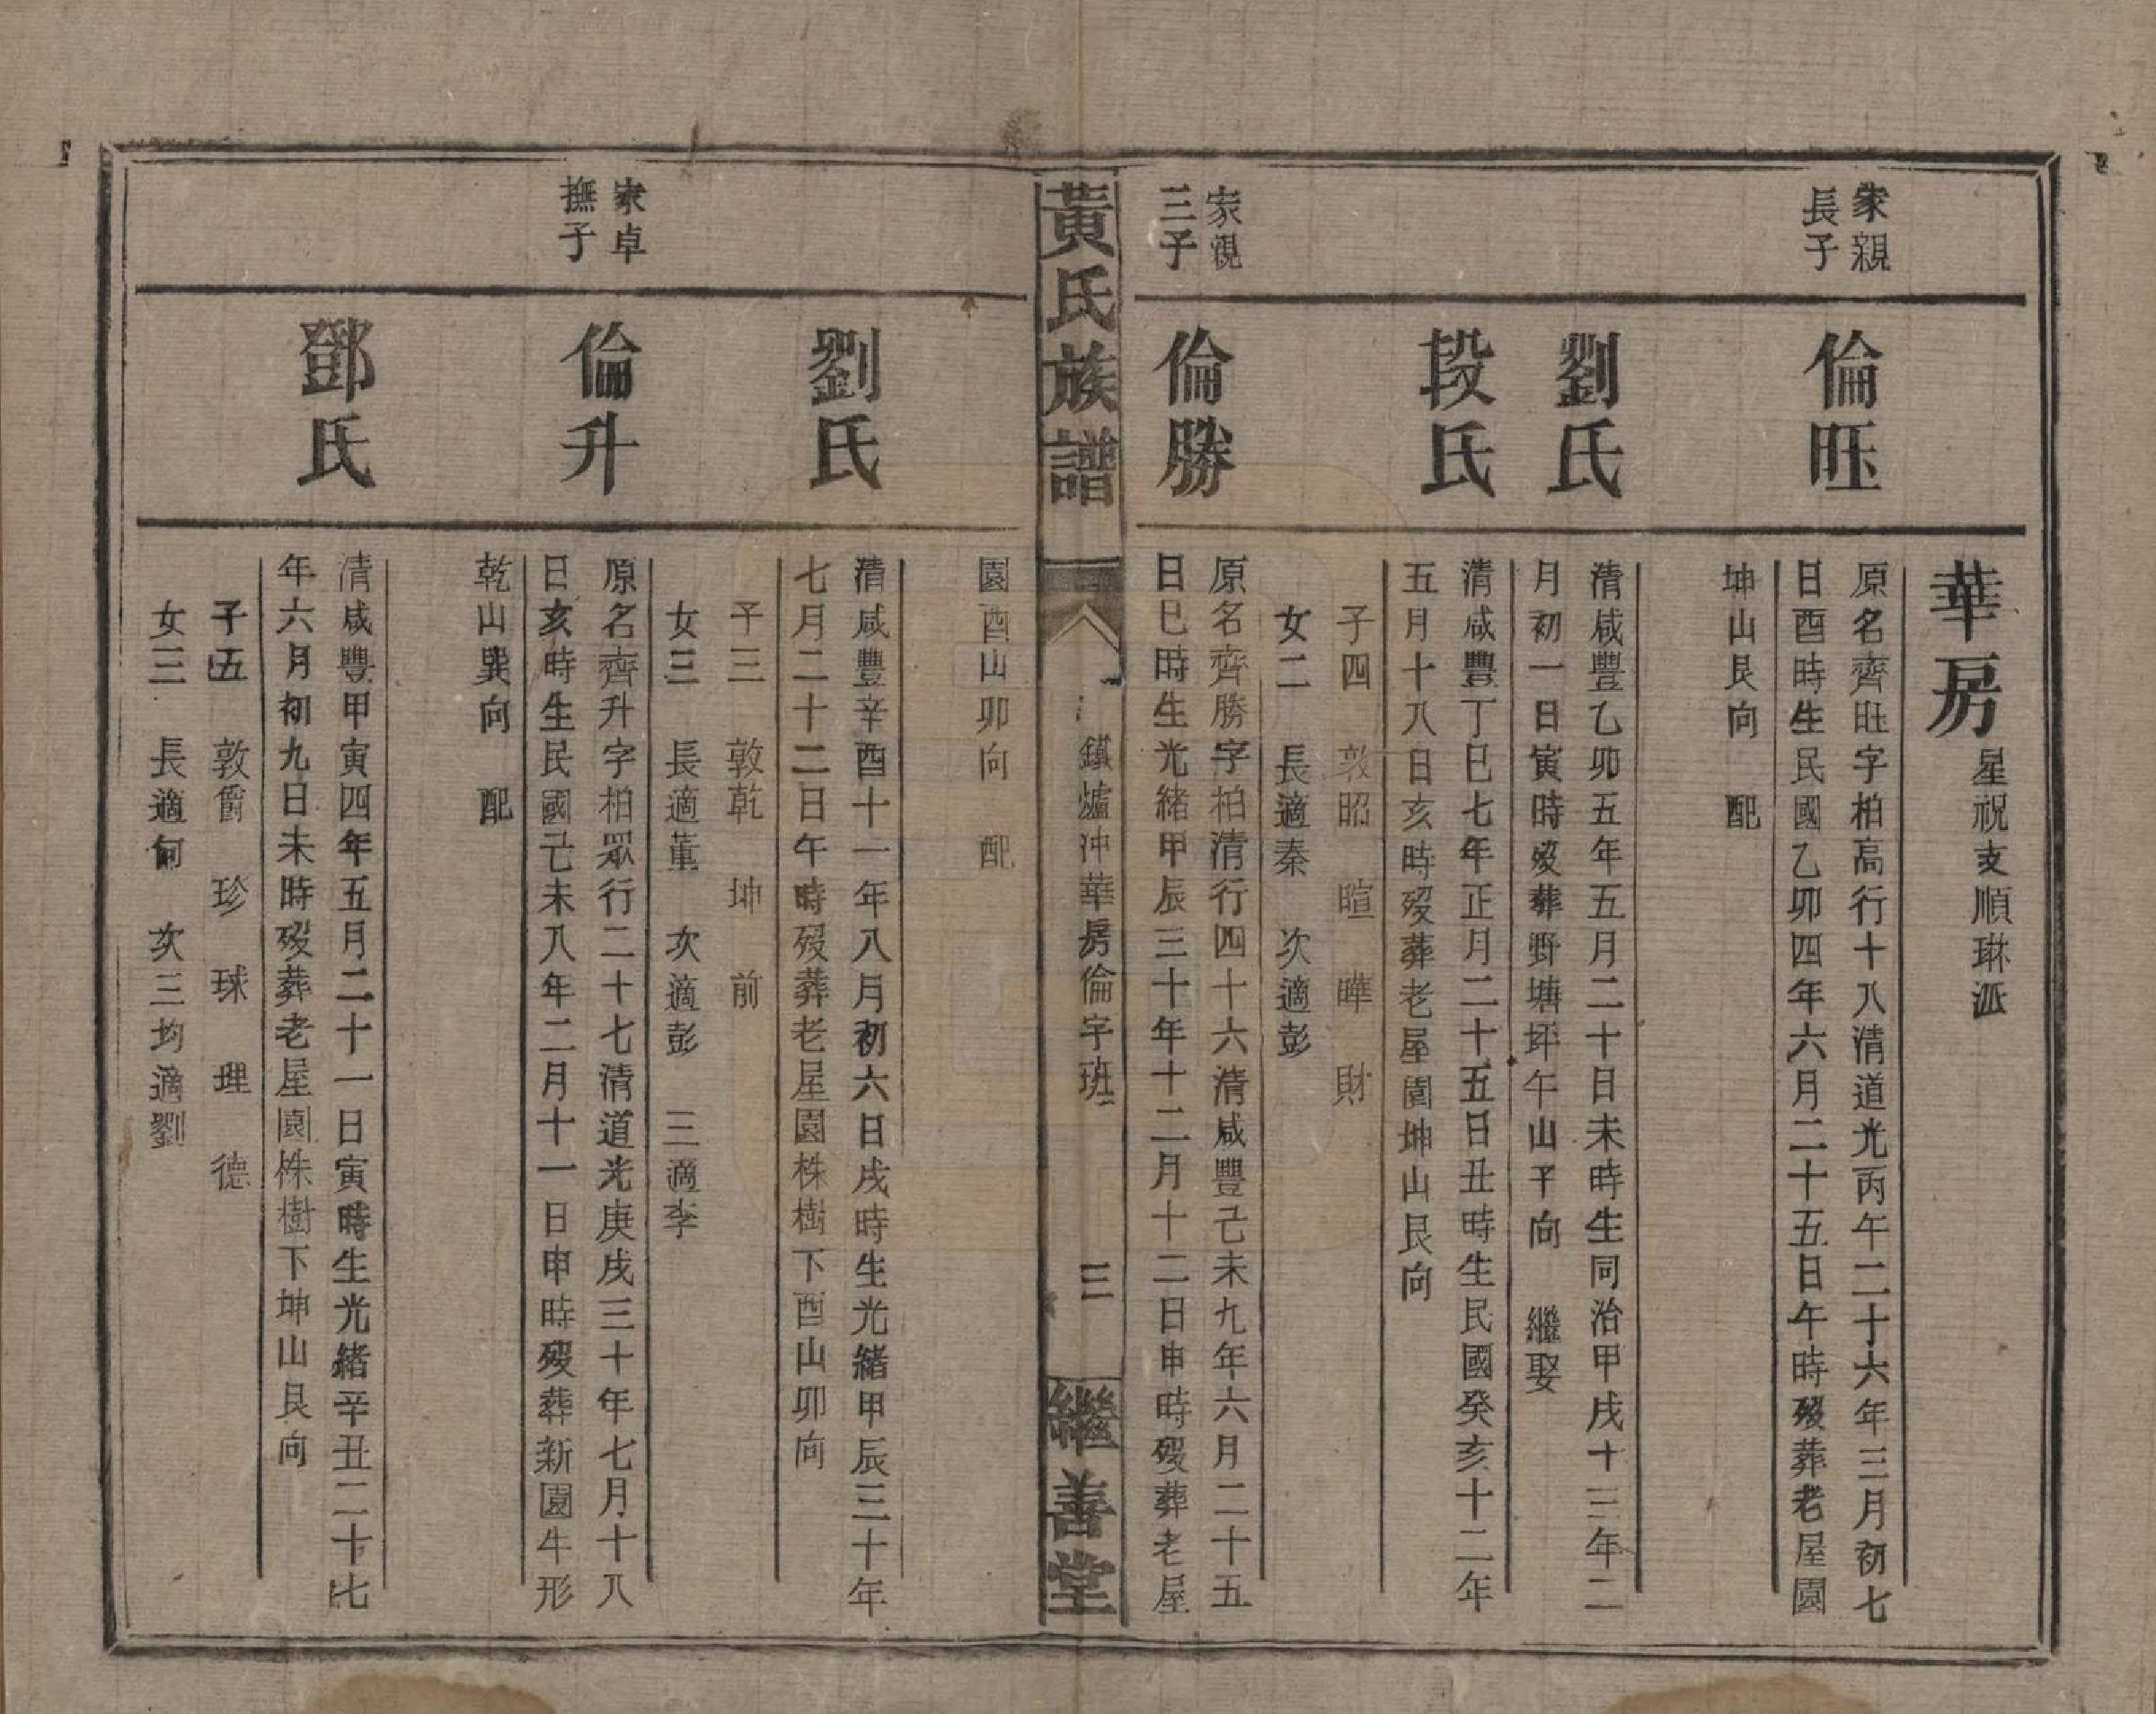 華房 星祝支順琳派
家親
長子
倫旺
原名齊旺字柏高行十八清道光丙午二十六年三月初七
日酉時生民國乙卯四年六月二十五日午時歿葬老屋園
坤山艮向 配
劉氏
清咸豐乙卯五年五月二十日未時生同治甲戌十三年二
月初一日寅時歿葬野塘坪午山子向 繼娶
段氏
清咸豐丁巳七年正月二十五日丑時生民國癸亥十二年
五月十八日亥時歿葬老屋園坤山艮向
子四 敦昭 暄 曄 財
女二 長適秦 次適彭
家視
三子
倫勝
原名齊勝字柏清行四十六清咸豐己未九年六月二十五
日巳時生光緒甲辰三十年十二月十二日申時歿葬老屋
黃氏族譜
鐵爐沖華房倫字班
三
繼善堂
園酉山卯向 配
劉氏
清咸豐辛酉十一年八月初六日戌時生光緒甲辰三十年
七月二十二日午時歿葬老屋園株樹下酉山卯向
子三 敦乾 坤 前
女三 長適董 次適彭 三適李
家卓
撫子
倫升
原名齊升字柏眾行二十七清道光庚戌三十年七月十八
日亥時生民國己未八年二月十一日申時歿葬新園牛形
乾山巽向 配
鄧氏
清咸豐甲寅四年五月二十一日寅時生光緒辛丑二十七
年六月初九日未時歿葬老屋園株樹下坤山艮向
子五 敦爵 珍 球 理 德
女三 長適何 次三均適劉